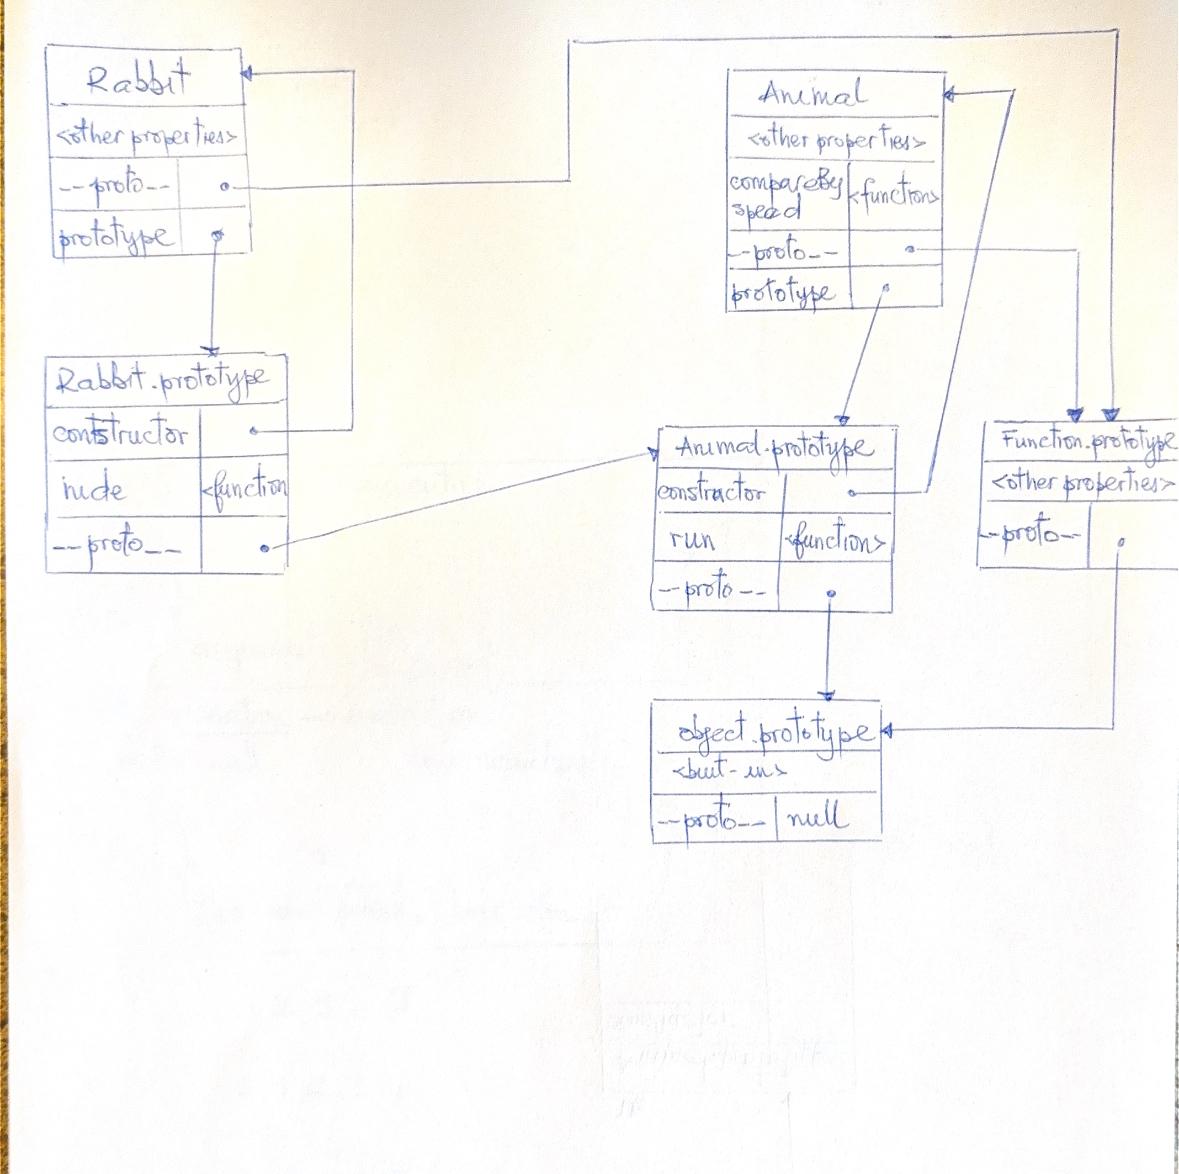 Rabbit
<other properties>
--proto--
prototype
Rabbit.prototype
contstructor
hide <function
--proto--
Animal
<other properties>
compareBy <function>
spead
--proto--
prototype
Animal.prototype
constractor
run <function>
--proto--
Function.prototype
<other properties>
--proto--
object.prototype
<buit-in>
--proto-- null